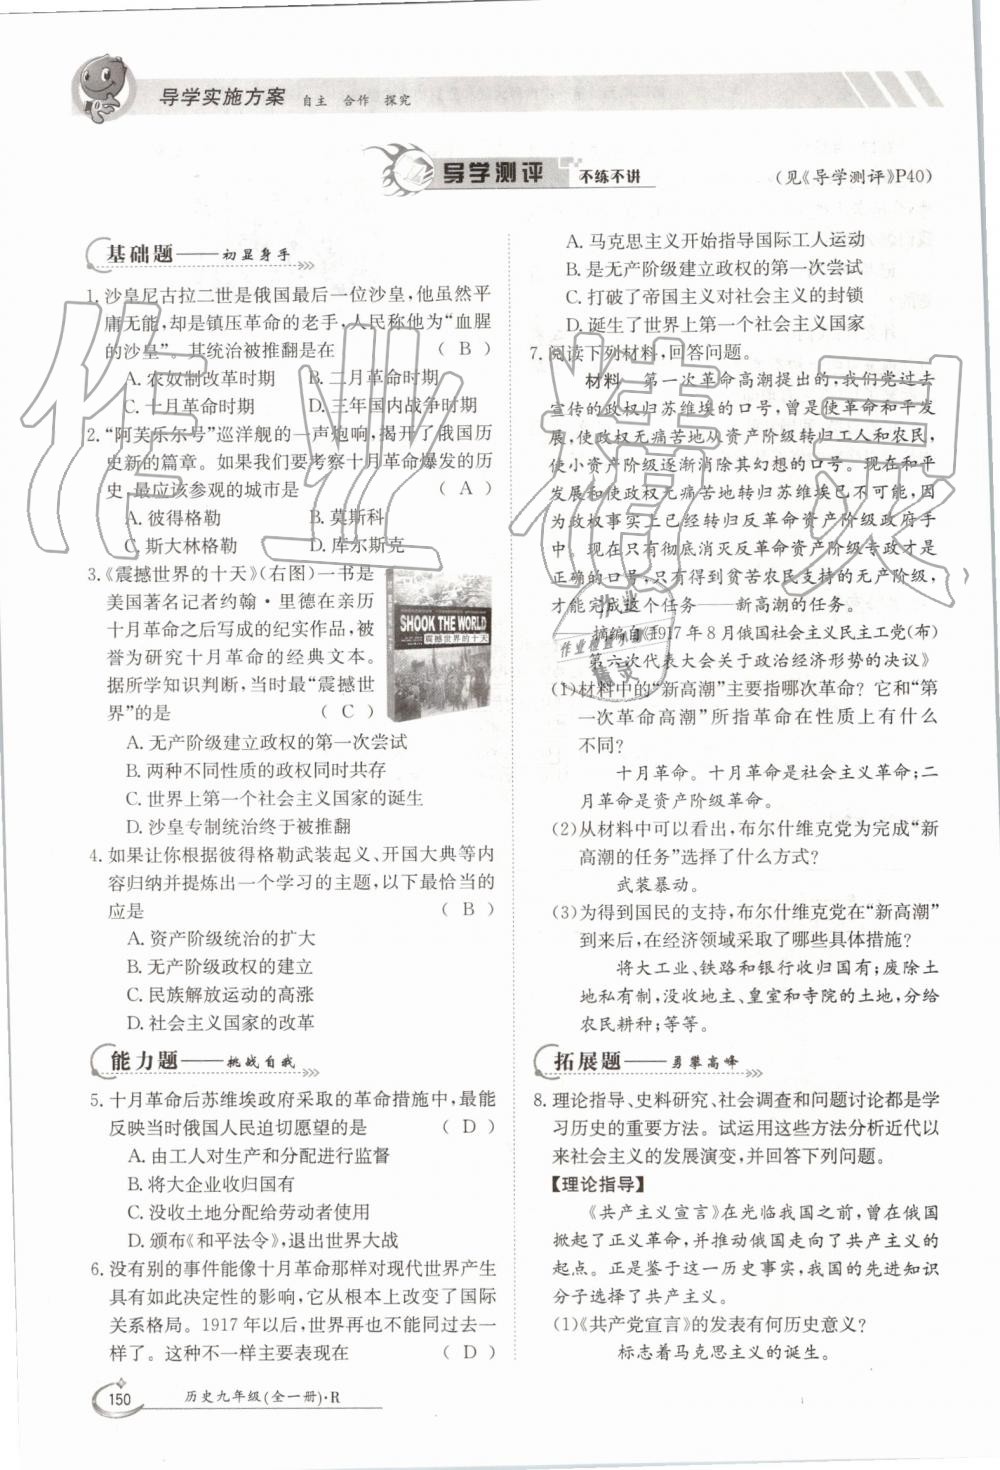 导学实施方案 自主 合作 探究
导学测评 不练不讲
(见《导学测评》P40)
基础题——初显身手
1. 沙皇尼古拉二世是俄国最后一位沙皇,他虽然平
庸无能,却是镇压革命的老手,人民称他为“血腥
的沙皇”。其统治被推翻是在 ( B )
A. 农奴制改革时期 B. 二月革命时期
C. 十月革命时期 D. 三年国内战争时期
2. “阿芙乐尔号”巡洋舰的一声炮响,揭开了俄国历
史新的篇章。如果我们要考察十月革命爆发的历
史,最应该参观的城市是 ( A )
A. 彼得格勒 B. 莫斯科
C. 斯大林格勒 D. 库尔斯克
3. 《震撼世界的十天》(右图)一书是
美国著名记者约翰·里德在亲历
十月革命之后写成的纪实作品,被
誉为研究十月革命的经典文本。
据所学知识判断,当时最“震撼世
界”的是 ( C )
SHOOK THE WORLD
震撼世界的十天
A. 无产阶级建立政权的第一次尝试
B. 两种不同性质的政权同时共存
C. 世界上第一个社会主义国家的诞生
D. 沙皇专制统治终于被推翻
4. 如果让你根据彼得格勒武装起义、开国大典等内
容归纳并提炼出一个学习的主题,以下最恰当的
应是 ( B )
A. 资产阶级统治的扩大
B. 无产阶级政权的建立
C. 民族解放运动的高涨
D. 社会主义国家的改革
能力题——挑战自我
5. 十月革命后苏维埃政府采取的革命措施中,最能
反映当时俄国人民迫切愿望的是 ( D )
A. 由工人对生产和分配进行监督
B. 将大企业收归国有
C. 没收土地分配给劳动者使用
D. 颁布《和平法令》,退出世界大战
6. 没有别的事件能像十月革命那样对现代世界产生
具有如此决定性的影响,它从根本上改变了国际
关系格局。1917年以后,世界再也不可能与以前一
样了。这种不一样主要表现在 ( D )
A. 马克思主义开始指导国际工人运动
B. 是无产阶级建立政权的第一次尝试
C. 打破了帝国主义对社会主义的封锁
D. 诞生了世界上第一个社会主义国家
7. 阅读下列材料,回答问题。
材料 第一次革命高潮提出的,我们党过去
宣传的政权归苏维埃的口号,曾是使革命和平发
展,使政权无痛苦地从资产阶级转归工人和农民,
使小资产阶级逐渐消除其幻想的口号。现在和平
发展和使政权无痛苦地转归苏维埃已不可能,因
为政权事实上已经转归反革命资产阶级政府手
中。现在只有彻底消灭反革命资产阶级专政才是
正确的口号,只有得到贫苦农民支持的无产阶级,
才能完成这个任务——新高潮的任务。
摘编自《1917年8月俄国社会主义民主工党(布)
第六次代表大会关于政治经济形势的决议》
(1)材料中的“新高潮”主要指哪次革命?它和“第
一次革命高潮”所指革命在性质上有什么
不同?
十月革命。十月革命是社会主义革命;二
月革命是资产阶级革命。
(2)从材料中可以看出,布尔什维克党为完成“新
高潮的任务”选择了什么方式?
武装暴动。
(3)为得到国民的支持,布尔什维克党在“新高潮”
到来后,在经济领域采取了哪些具体措施?
将大工业、铁路和银行收归国有;废除土
地私有制,没收地主、皇室和寺院的土地,分给
农民耕种;等等。
拓展题——勇攀高峰
8. 理论指导、史料研究、社会调查和问题讨论都是学
习历史的重要方法。试运用这些方法分析近代以
来社会主义的发展演变,并回答下列问题。
【理论指导】
《共产主义宣言》在光临我国之前,曾在俄国
掀起了正义革命,并推动俄国走向了共产主义的
起点。正是鉴于这一历史事实,我国的先进知识
分子选择了共产主义。
(1)《共产党宣言》的发表有何历史意义?
标志着马克思主义的诞生。
150 历史九年级(全一册)·R
作业精灵
作业检查小助手
精灵